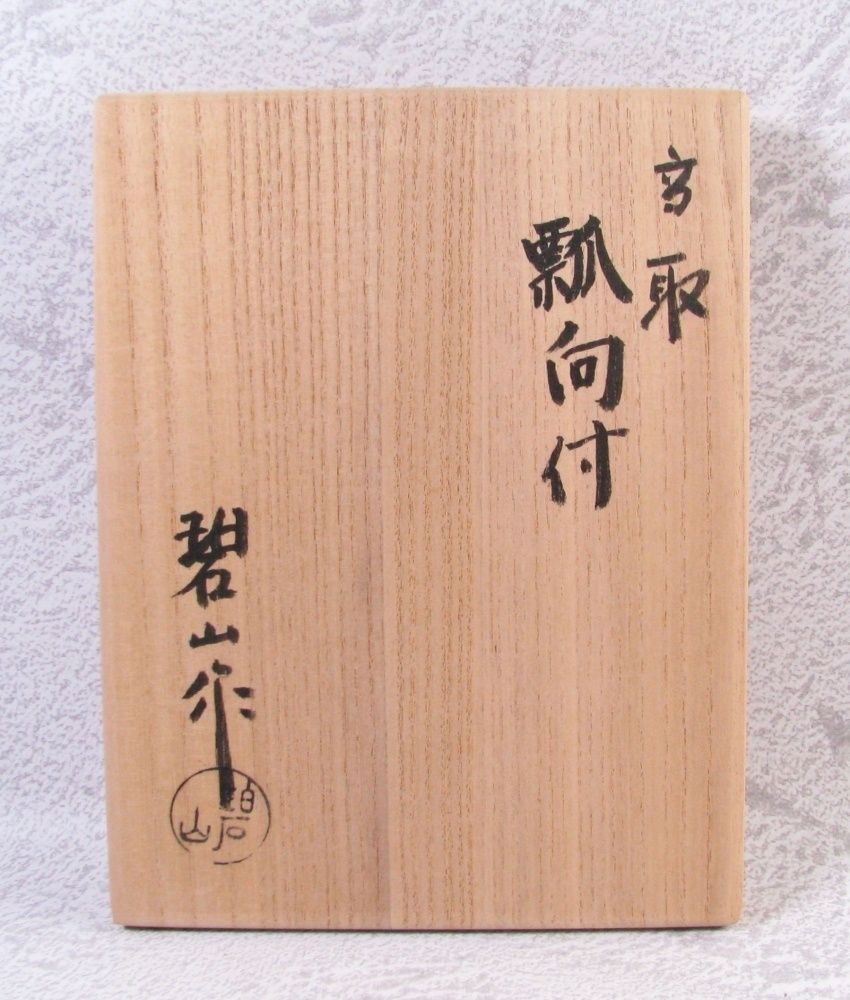 高取
瓢向付
碧山作
碧山